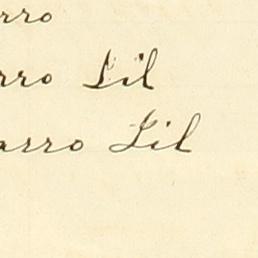 rro
rro Lil
arro Lil